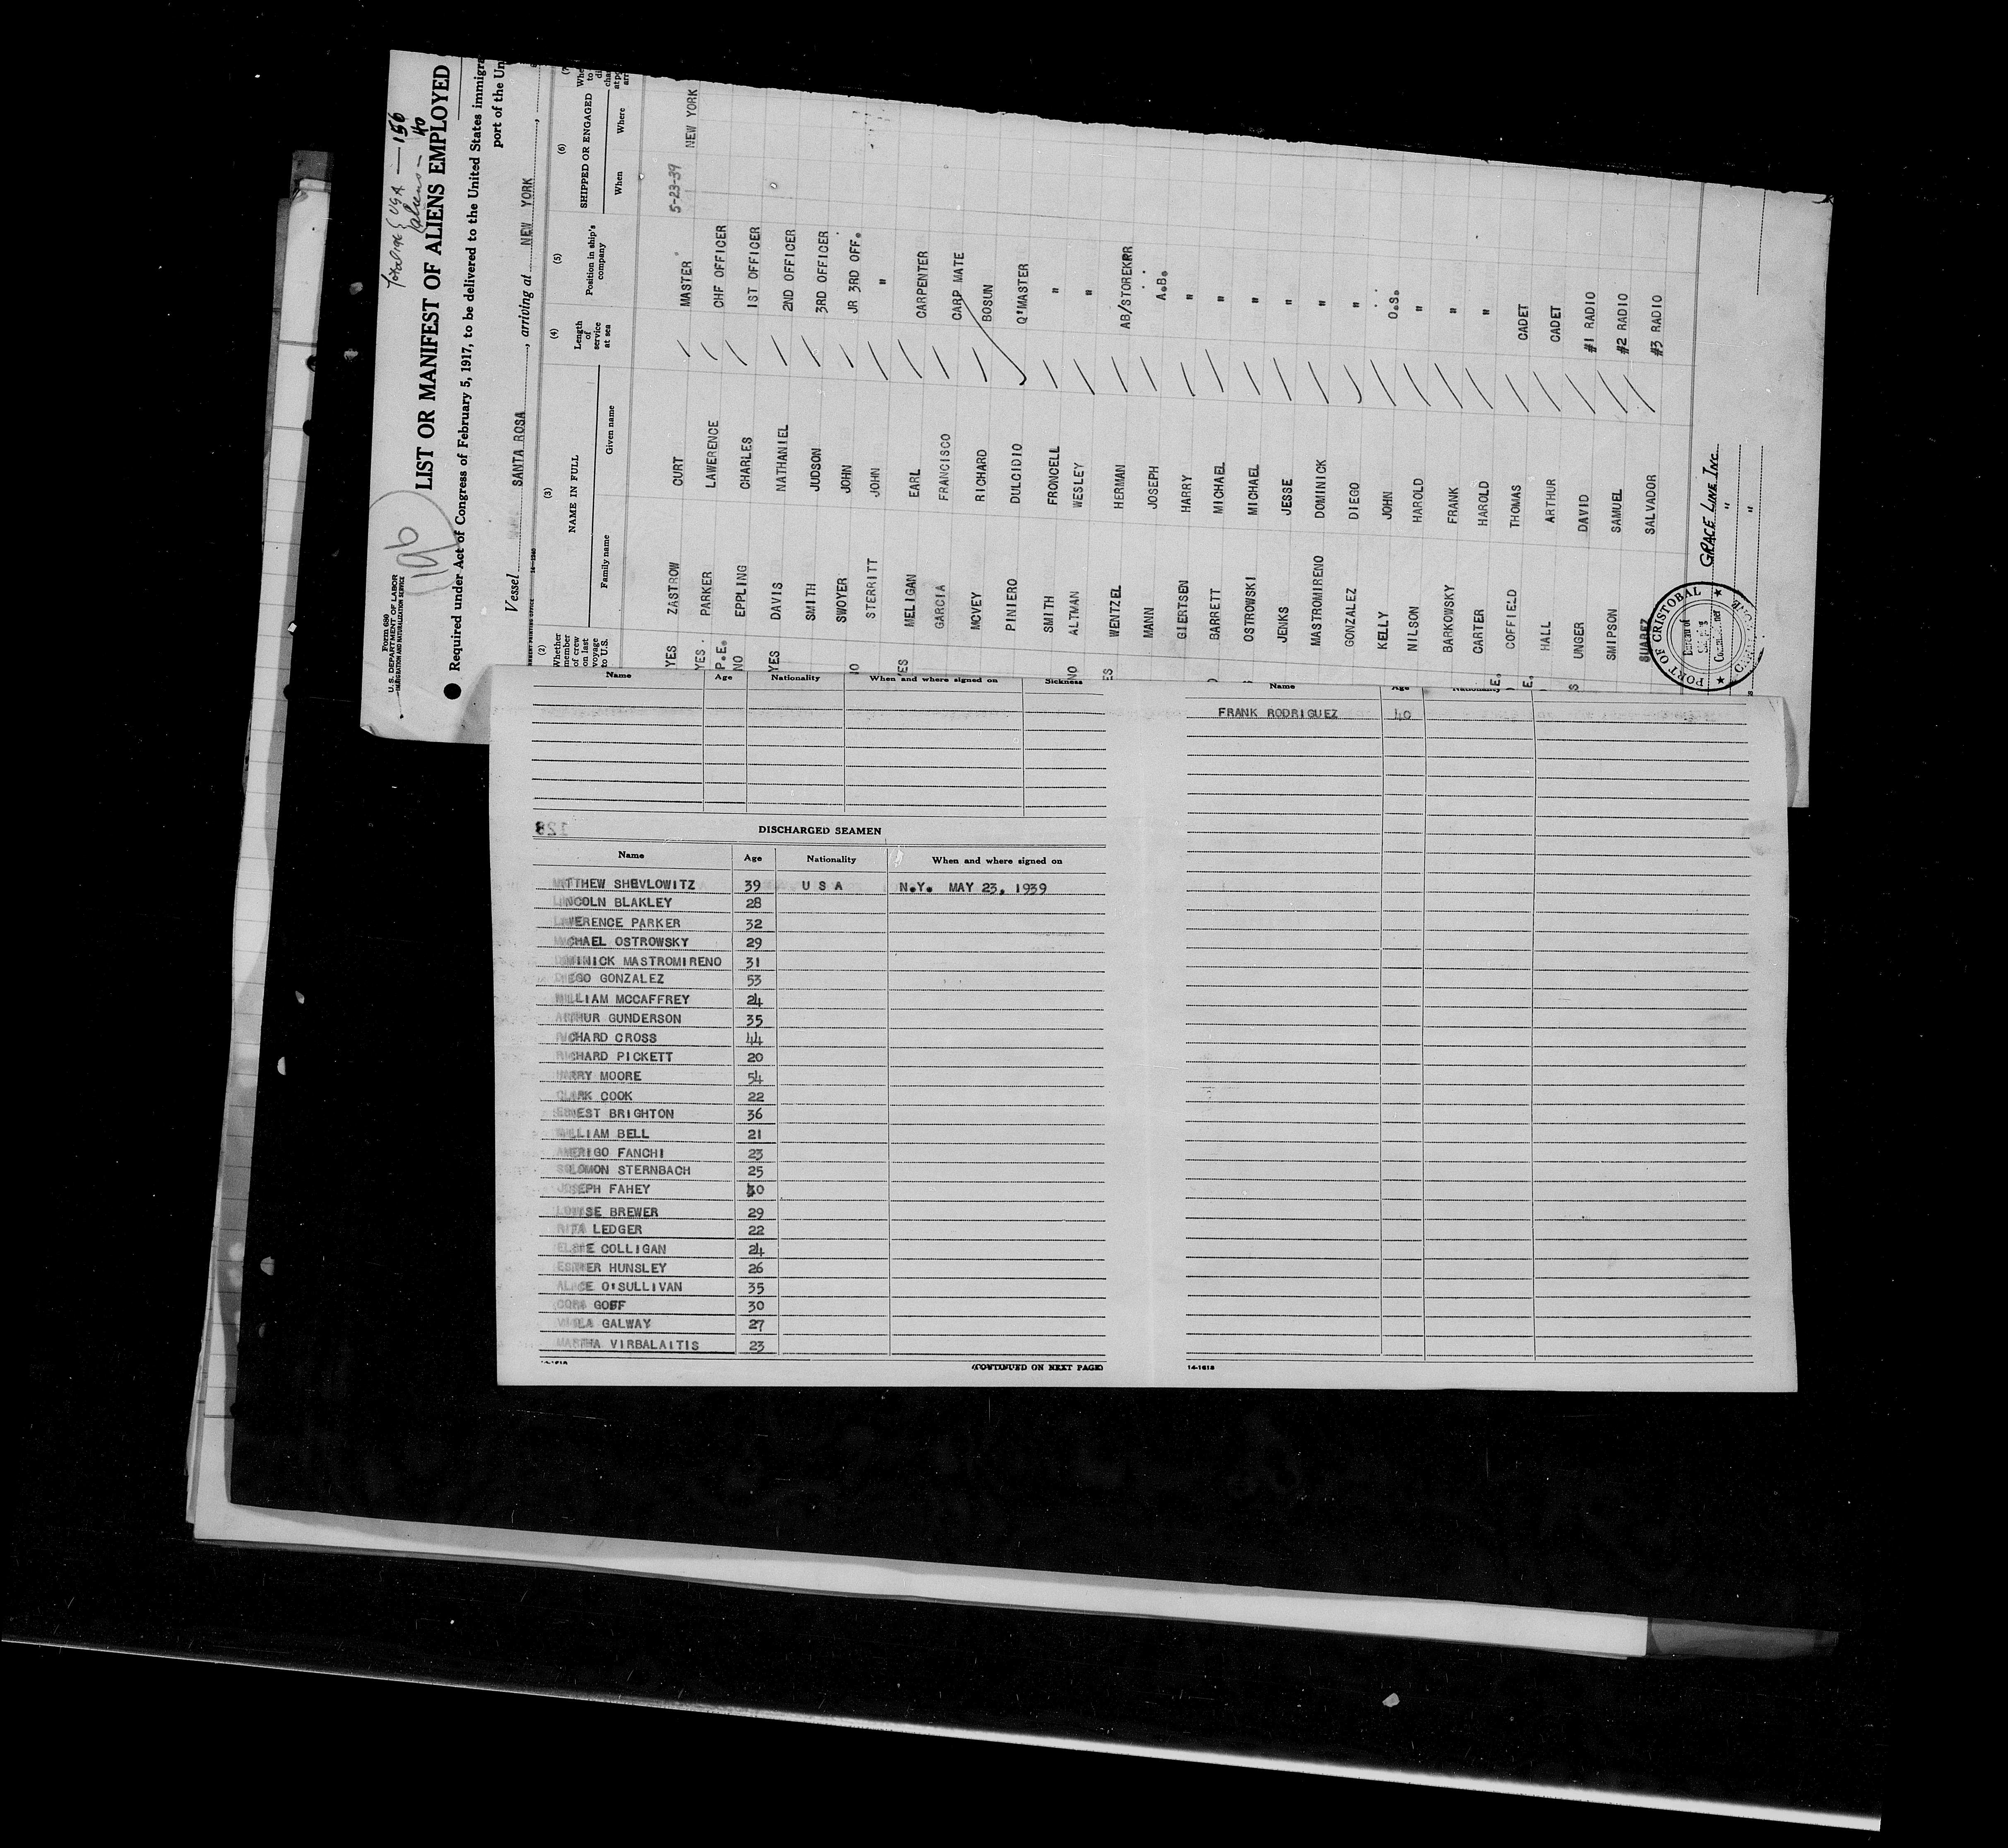 Form 680
U. S. DEPARTMENT OF LABOR
IMMIGRATION AND NATURALIZATION SERVICE
196
Total {USA — 156
aliens — 40
LIST OR MANIFEST OF ALIENS EMPLOYED
Required under Act of Congress of February 5, 1917, to be delivered to the United States immigra
port of the Un
Vessel SANTA ROSA, arriving at NEW YORK,
(2) (3) (4) (5) (6) (7)
Whether member of crew on last voyage to U.S.
NAME IN FULL
Family name Given name
Length of service at sea
Position in ship's company
SHIPPED OR ENGAGED
When Where
YES ZASTROW CURT MASTER 5-23-39 NEW YORK
YES PARKER LAWERENCE CHF OFFICER
P.E.
NO EPPLING CHARLES 1ST OFFICER
YES DAVIS NATHANIEL 2ND OFFICER
SMITH JUDSON 3RD OFFICER
SWOYER JOHN JR 3RD OFF.
STERRITT JOHN "
MELIGAN EARL CARPENTER
GARCIA FRANCISCO CARP MATE
MCVEY RICHARD BOSUN
PINIERO DULCIDIO Q'MASTER
SMITH FRONCELL "
NO ALTMAN WESLEY "
ES WENTZEL HERMAN AB/STOREKRR
MANN JOSEPH A.B.
GIERTSEN HARRY "
BARRETT MICHAEL "
OSTROWSKI MICHAEL "
JENKS JESSE "
MASTROMIRENO DOMINICK "
GONZALEZ DIEGO "
KELLY JOHN O.S.
NILSON HAROLD "
BARKOWSKY FRANK "
CARTER HAROLD "
COFFIELD THOMAS CADET
HALL ARTHUR CADET
UNGER DAVID #1 RADIO
SMIPSON SAMUEL #2 RADIO
SUAREZ SALVADOR #3 RADIO
GRACE LINE INC.
"
"
PORT OF CRISTOBAL
Name Age Nationality When and where signed on Sickness
DISCHARGED SEAMEN
128
Name Age Nationality When and where signed on
MATTHEW SHEVLOWITZ 39 U S A N.Y. MAY 23, 1939
LINCOLN BLAKLEY 28
LAWERENCE PARKER 32
MICHAEL OSTROWSKY 29
DOMINICK MASTROMIRENO 31
DIEGO GONZALEZ 53
WILLIAM MCCAFFREY 24
ARTHUR GUNDERSON 35
RICHARD CROSS 44
RICHARD PICKETT 20
HARRY MOORE 54
CLARK COOK 22
ERNEST BRIGHTON 36
WILLIAM BELL 21
AMERIGO FANCHI 23
SOLOMON STERNBACH 25
JOSEPH FAHEY 30
LOUISE BREWER 29
RITA LEDGER 22
ELSIE COLLIGAN 24
ESTHER HUNSLEY 26
ALICE O'SULLIVAN 35
CORA GOFF 30
VIOLA GALWAY 27
MARTHA VIRBALAITIS 23
(CONTINUED ON NEXT PAGE)
Name Age Nationality
FRANK RODRIGUEZ 40
14-1618